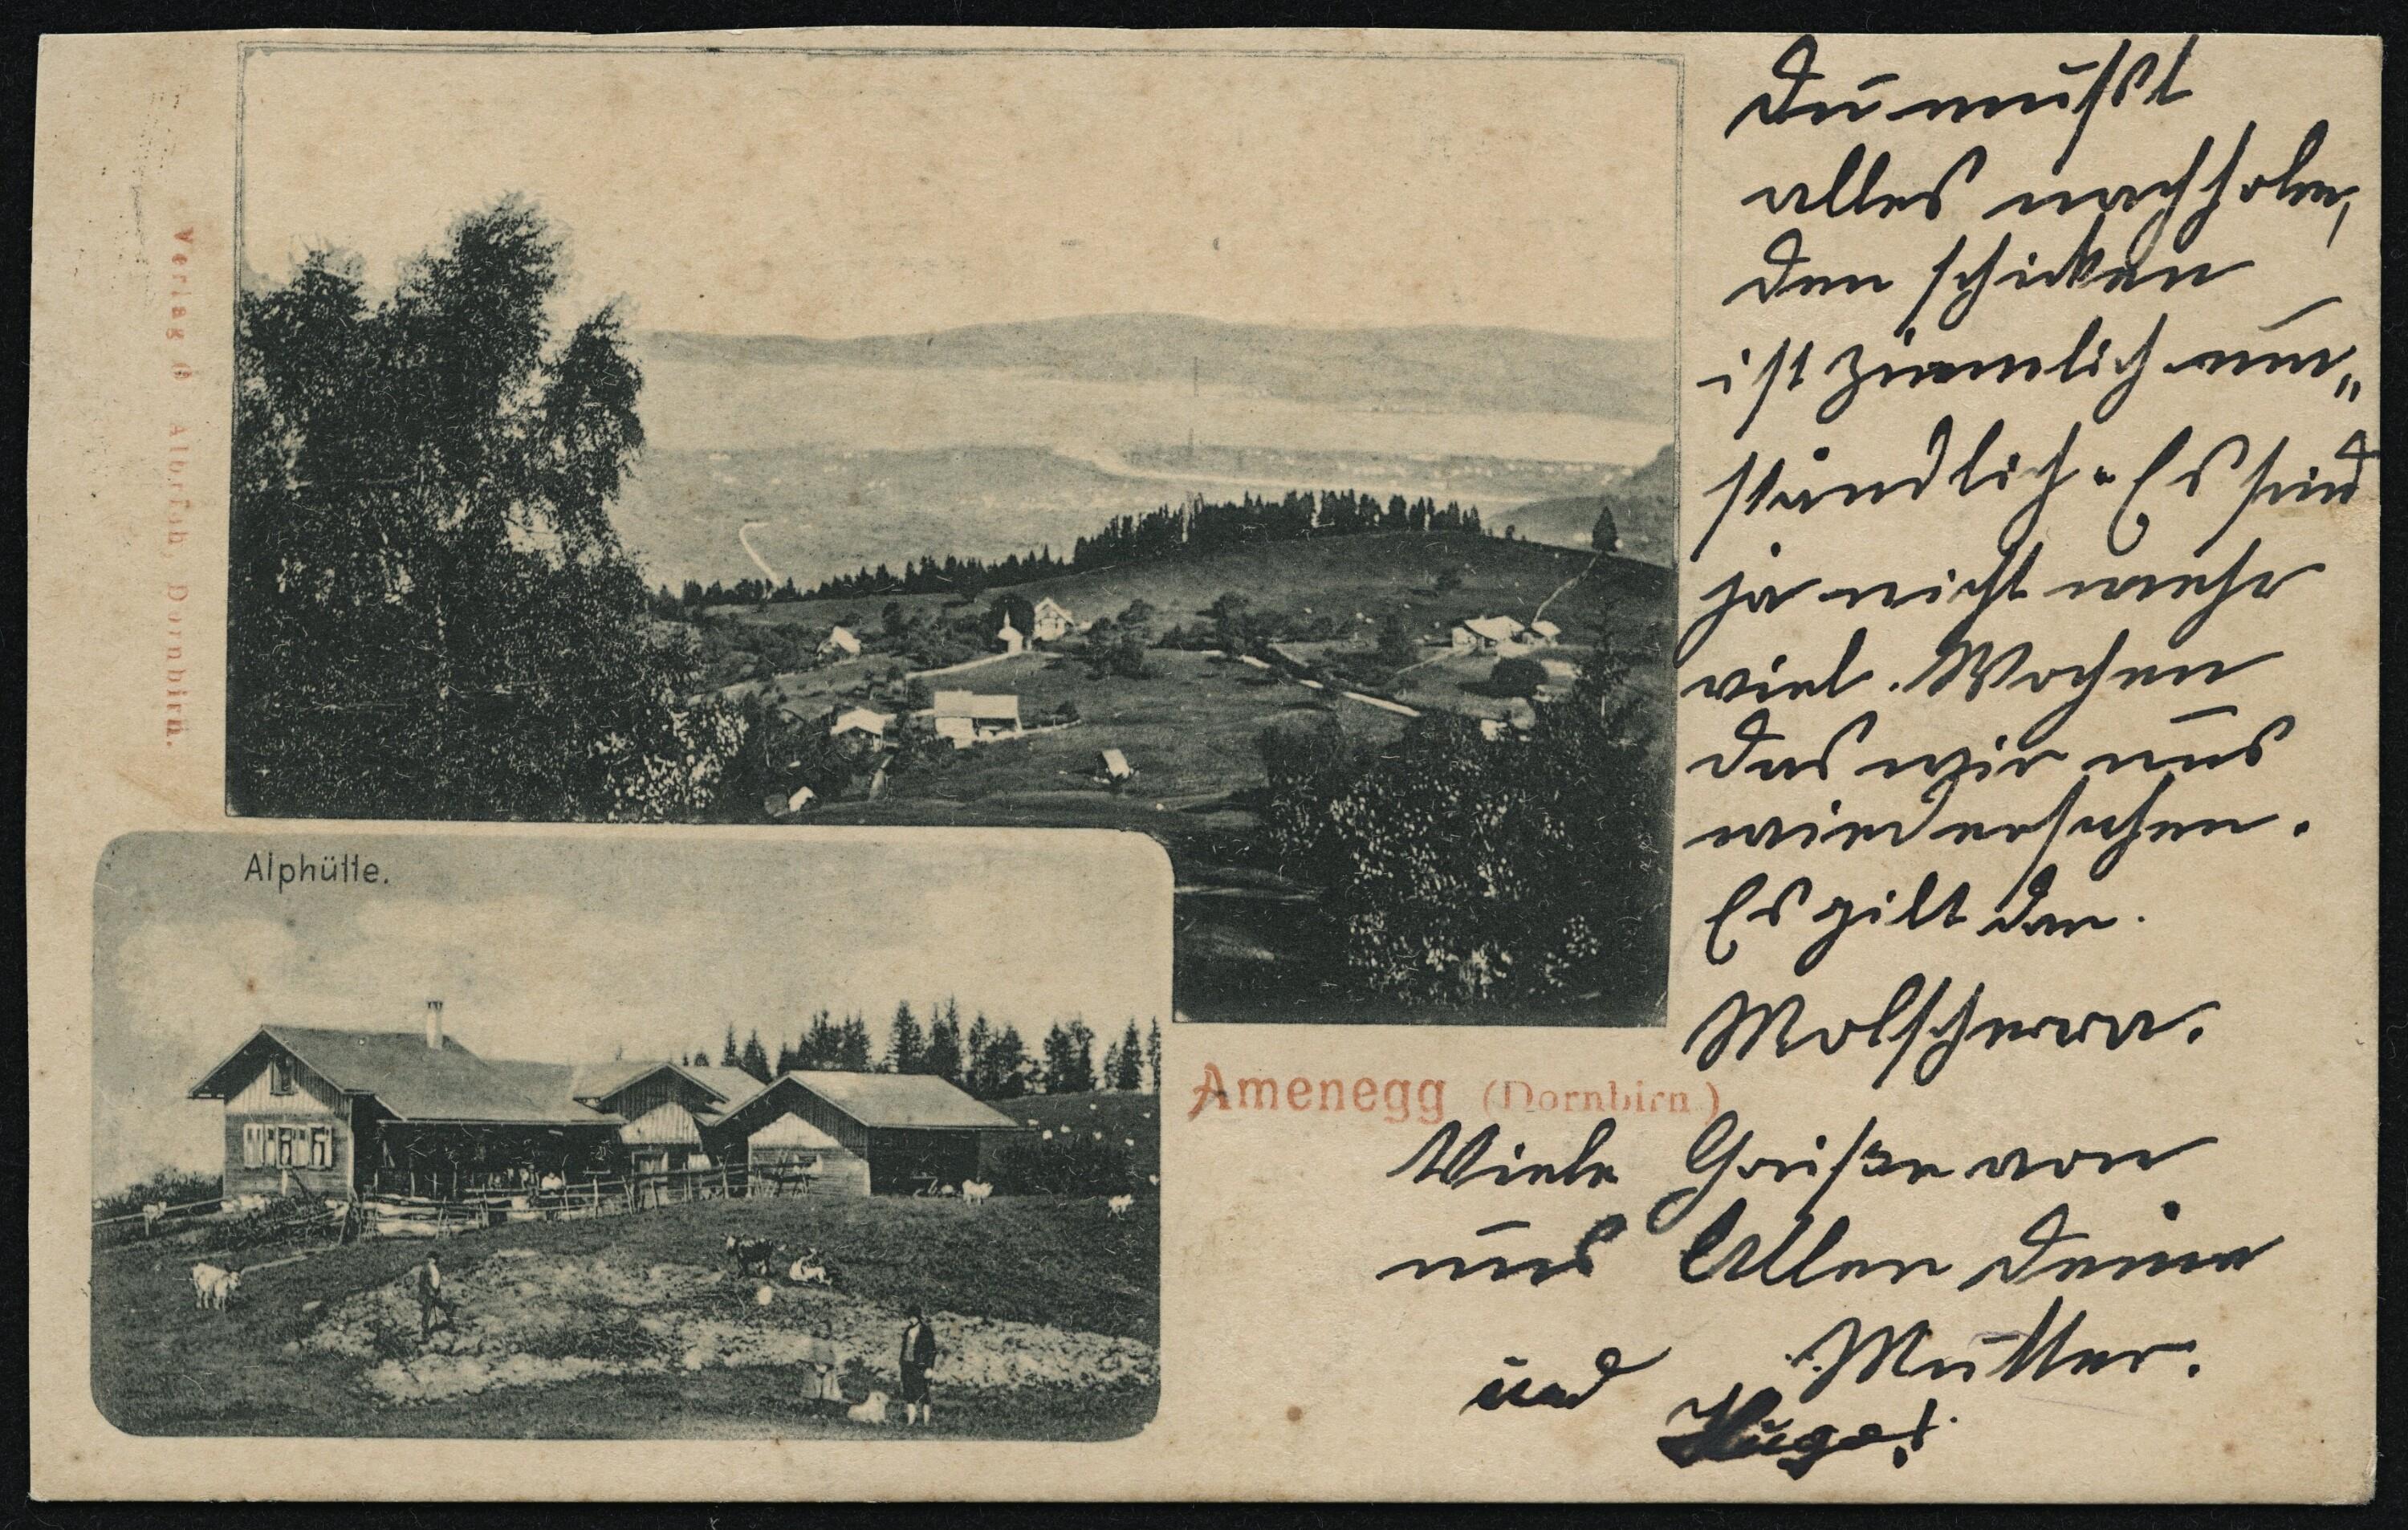 Verlag G. Albrich, Dornbirn.
Alphütte.
Amenegg (Dornbirn)
Du mußt
alles nachholen,
den schicken
ist ziemlich um„
ständlich. Es sind
ja nicht mehr
viel Wochen
das wir uns
wiedersehen.
Es gilt der
Viele Grüße von
uns Allen deine
Mutter.
und Hugo!